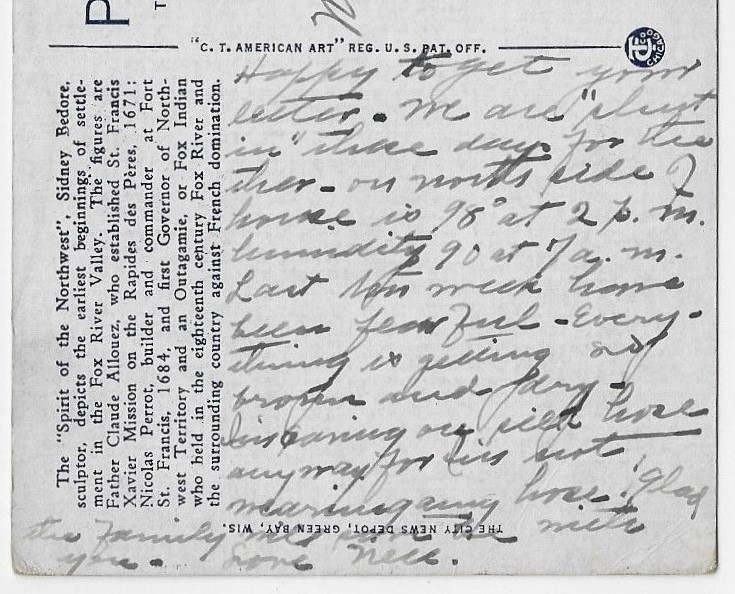 P
T
"C. T. AMERICAN ART" REG. U. S. PAT. OFF.
The "Spirit of the Northwest", Sidney Bedore,
sculptor, depicts the earliest beginnings of settle-
ment in the Fox River Valley. The figures are
Father Claude Allouez, who established St. Francis
Xavier Mission on the Rapides des Pères, 1671;
Nicolas Perrot, builder and commander at Fort
St. Francis, 1684, and first Governor of North-
west Territory and an Outagamie, or Fox Indian
who held in the eighteenth century Fox River and
the surrounding country against French domination.
THE CITY NEWS DEPOT, GREEN BAY, WIS.
Happy to get your
letter. We are "shut
in" these days for the
ther - on north side of
house is 98° at 2 p. m.
humidity 90 at 7 a. m.
Last two week have
been fearful - Every-
thing is getting so
brown and dry -
on hose
anyway for I'm not
wearing any hose! Glad
the family nice
you - Love Nell.